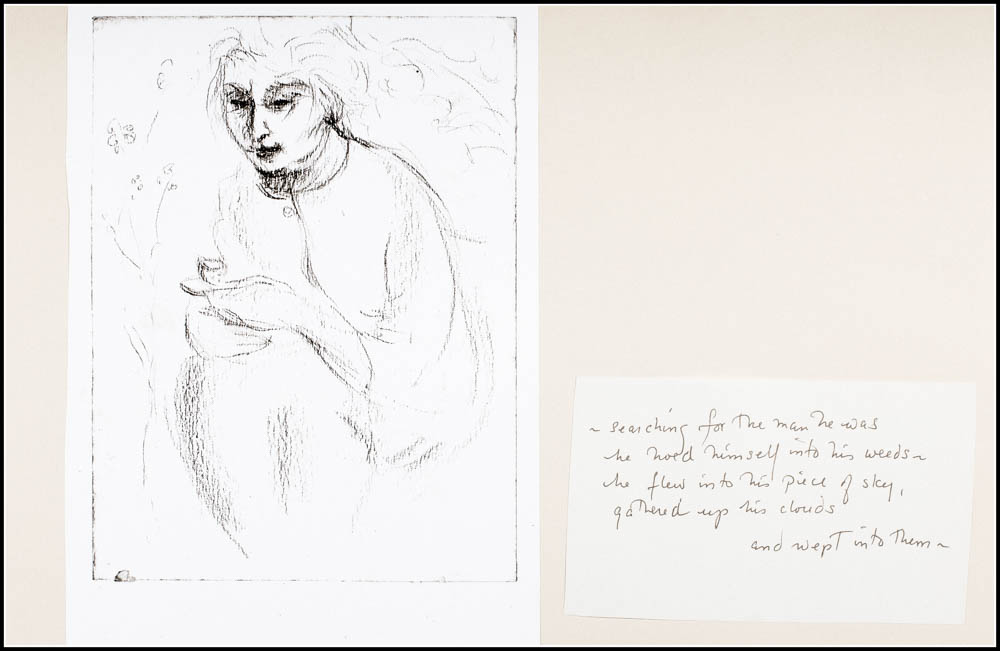 ~ searching for the man he was
he hoed himself into his weeds ~
he flew into his piece of sky,
gathered up his clouds
and wept into them ~